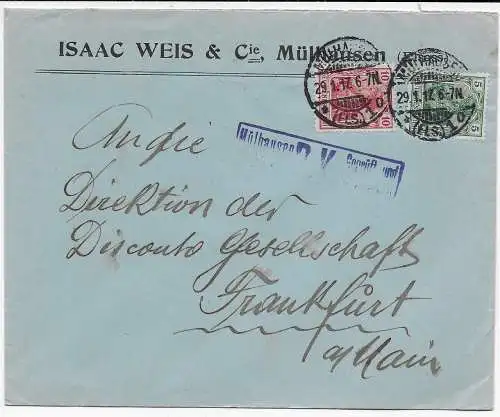 ISAAC WEIS & Cie, Mülhausen
29.1.17. 6-7N.
(ELS) 1 o
10
10
29.1.17. 6-7N.
(ELS) 1 o
5
5
Mülhausen P. K. Geprüft und
An die
Direktion der
Disconto Gesellschaft
Frankfurt
a/Main